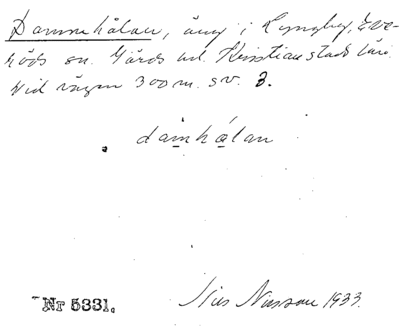 Dammhålan, äng i Lyngby, Eve-
röds sn. Gärds hd. Kristianstads län.
Vid vägen 300 m. sv. 3.
damhålan
Nr 5331. Nils Nilsson 1933.